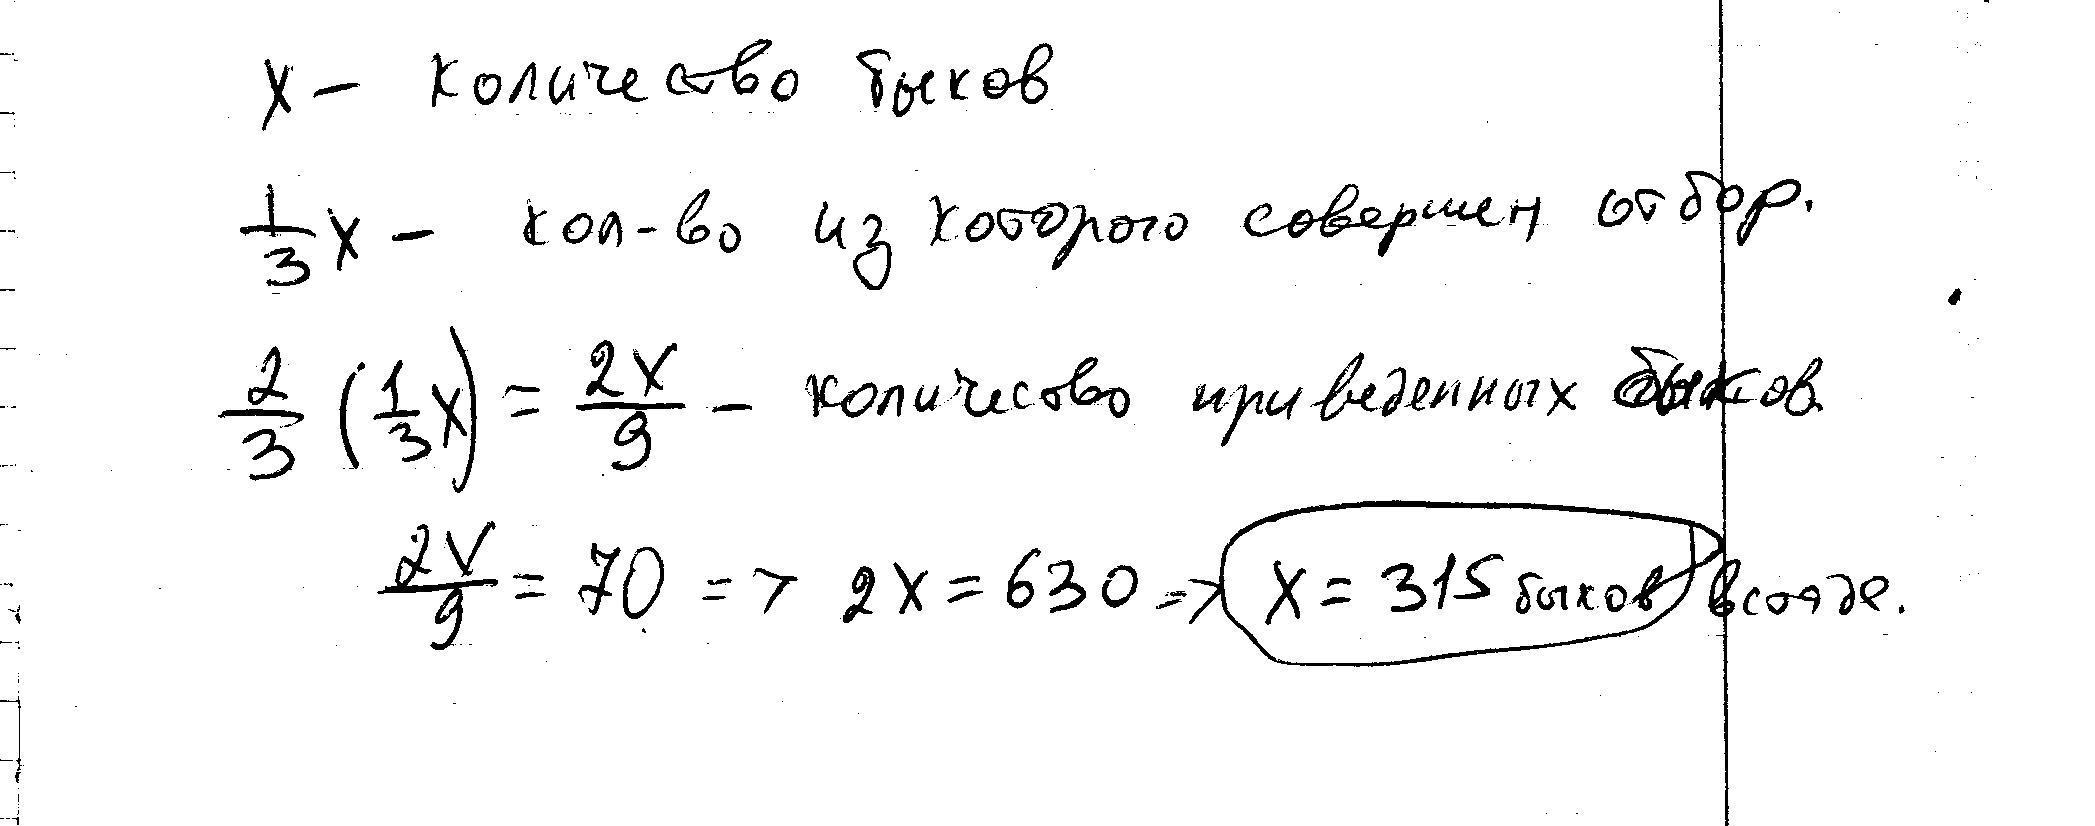 x - количество быков
1/3 x - кол-во из которого совершен отбор.
2/3 (1/3 x) = 2x/9 - количество приведенных быков.
2x/9 = 70 => 2x = 630 => x = 315 быков в стаде.